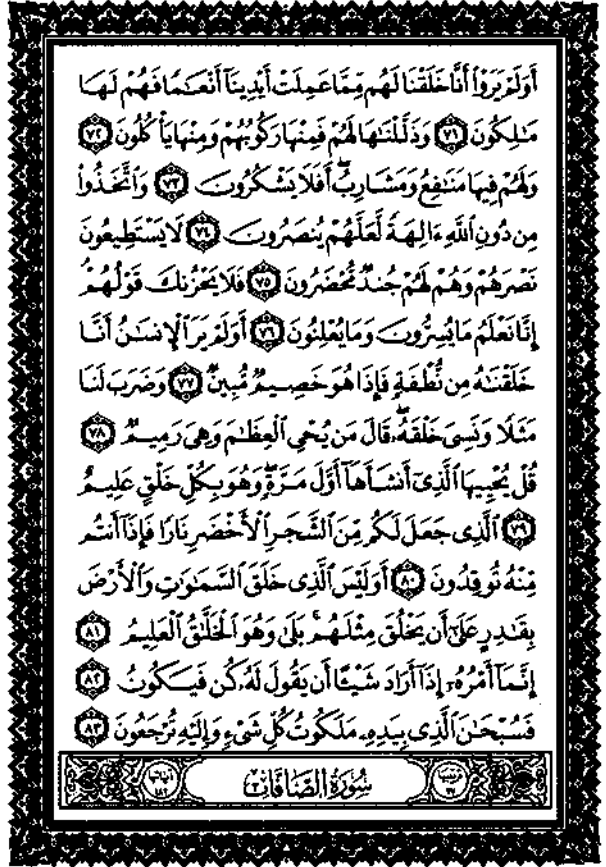 أَوَلَمْ يَرَوْا۟ أَنَّا خَلَقْنَا لَهُم مِّمَّا عَمِلَتْ أَيْدِينَآ أَنْعَٰمًا فَهُمْ لَهَا
مَٰلِكُونَ ٧١ وَذَلَّلْنَٰهَا لَهُمْ فَمِنْهَا رَكُوبُهُمْ وَمِنْهَا يَأْكُلُونَ ٧٢
وَلَهُمْ فِيهَا مَنَٰفِعُ وَمَشَارِبُ ۖ أَفَلَا يَشْكُرُونَ ٧٣ وَٱتَّخَذُوا۟
مِن دُونِ ٱللَّهِ ءَالِهَةً لَّعَلَّهُمْ يُنصَرُونَ ٧٤ لَا يَسْتَطِيعُونَ
نَصْرَهُمْ وَهُمْ لَهُمْ جُندٌ مُّحْضَرُونَ ٧٥ فَلَا يَحْزُنكَ قَوْلُهُمْ ۘ
إِنَّا نَعْلَمُ مَا يُسِرُّونَ وَمَا يُعْلِنُونَ ٧٦ أَوَلَمْ يَرَ ٱلْإِنسَٰنُ أَنَّا
خَلَقْنَٰهُ مِن نُّطْفَةٍ فَإِذَا هُوَ خَصِيمٌ مُّبِينٌ ٧٧ وَضَرَبَ لَنَا
مَثَلًا وَنَسِىَ خَلْقَهُۥ ۖ قَالَ مَن يُحْىِ ٱلْعِظَٰمَ وَهِىَ رَمِيمٌ ٧٨
قُلْ يُحْيِيهَا ٱلَّذِىٓ أَنشَأَهَآ أَوَّلَ مَرَّةٍ ۖ وَهُوَ بِكُلِّ خَلْقٍ عَلِيمٌ
٧٩ ٱلَّذِى جَعَلَ لَكُم مِّنَ ٱلشَّجَرِ ٱلْأَخْضَرِ نَارًا فَإِذَآ أَنتُم
مِّنْهُ تُوقِدُونَ ٨٠ أَوَلَيْسَ ٱلَّذِى خَلَقَ ٱلسَّمَٰوَٰتِ وَٱلْأَرْضَ
بِقَٰدِرٍ عَلَىٰٓ أَن يَخْلُقَ مِثْلَهُم ۚ بَلَىٰ وَهُوَ ٱلْخَلَّٰقُ ٱلْعَلِيمُ ٨١
إِنَّمَآ أَمْرُهُۥٓ إِذَآ أَرَادَ شَيْـًٔا أَن يَقُولَ لَهُۥ كُن فَيَكُونُ ٨٢
فَسُبْحَٰنَ ٱلَّذِى بِيَدِهِۦ مَلَكُوتُ كُلِّ شَىْءٍ وَإِلَيْهِ تُرْجَعُونَ ٨٣
ترتيبها ٣٧ سُورَةُ الصَّافَّاتِ آياتها ١٨٢